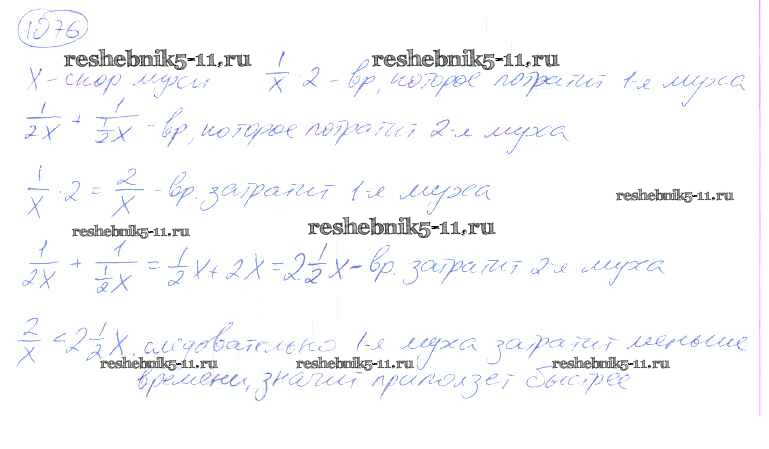 1076
reshebnik5-11.ru reshebnik5-11.ru
x - скор мухи 1/x · 2 - вр, которое потратит 1-я муха
1/2x + 1/(1/2 x) - вр, которое потратит 2-я муха
1/x · 2 = 2/x - вр. затратит 1-я муха
reshebnik5-11.ru
reshebnik5-11.ru reshebnik5-11.ru
1/2x + 1/(1/2 x) = 1/2 x + 2x = 2 1/2 x - вр. затратит 2-я муха
2/x < 2 1/2 x. следовательно 1-я муха затратит меньше
reshebnik5-11.ru reshebnik5-11.ru reshebnik5-11.ru
времени, значит приползет быстрее